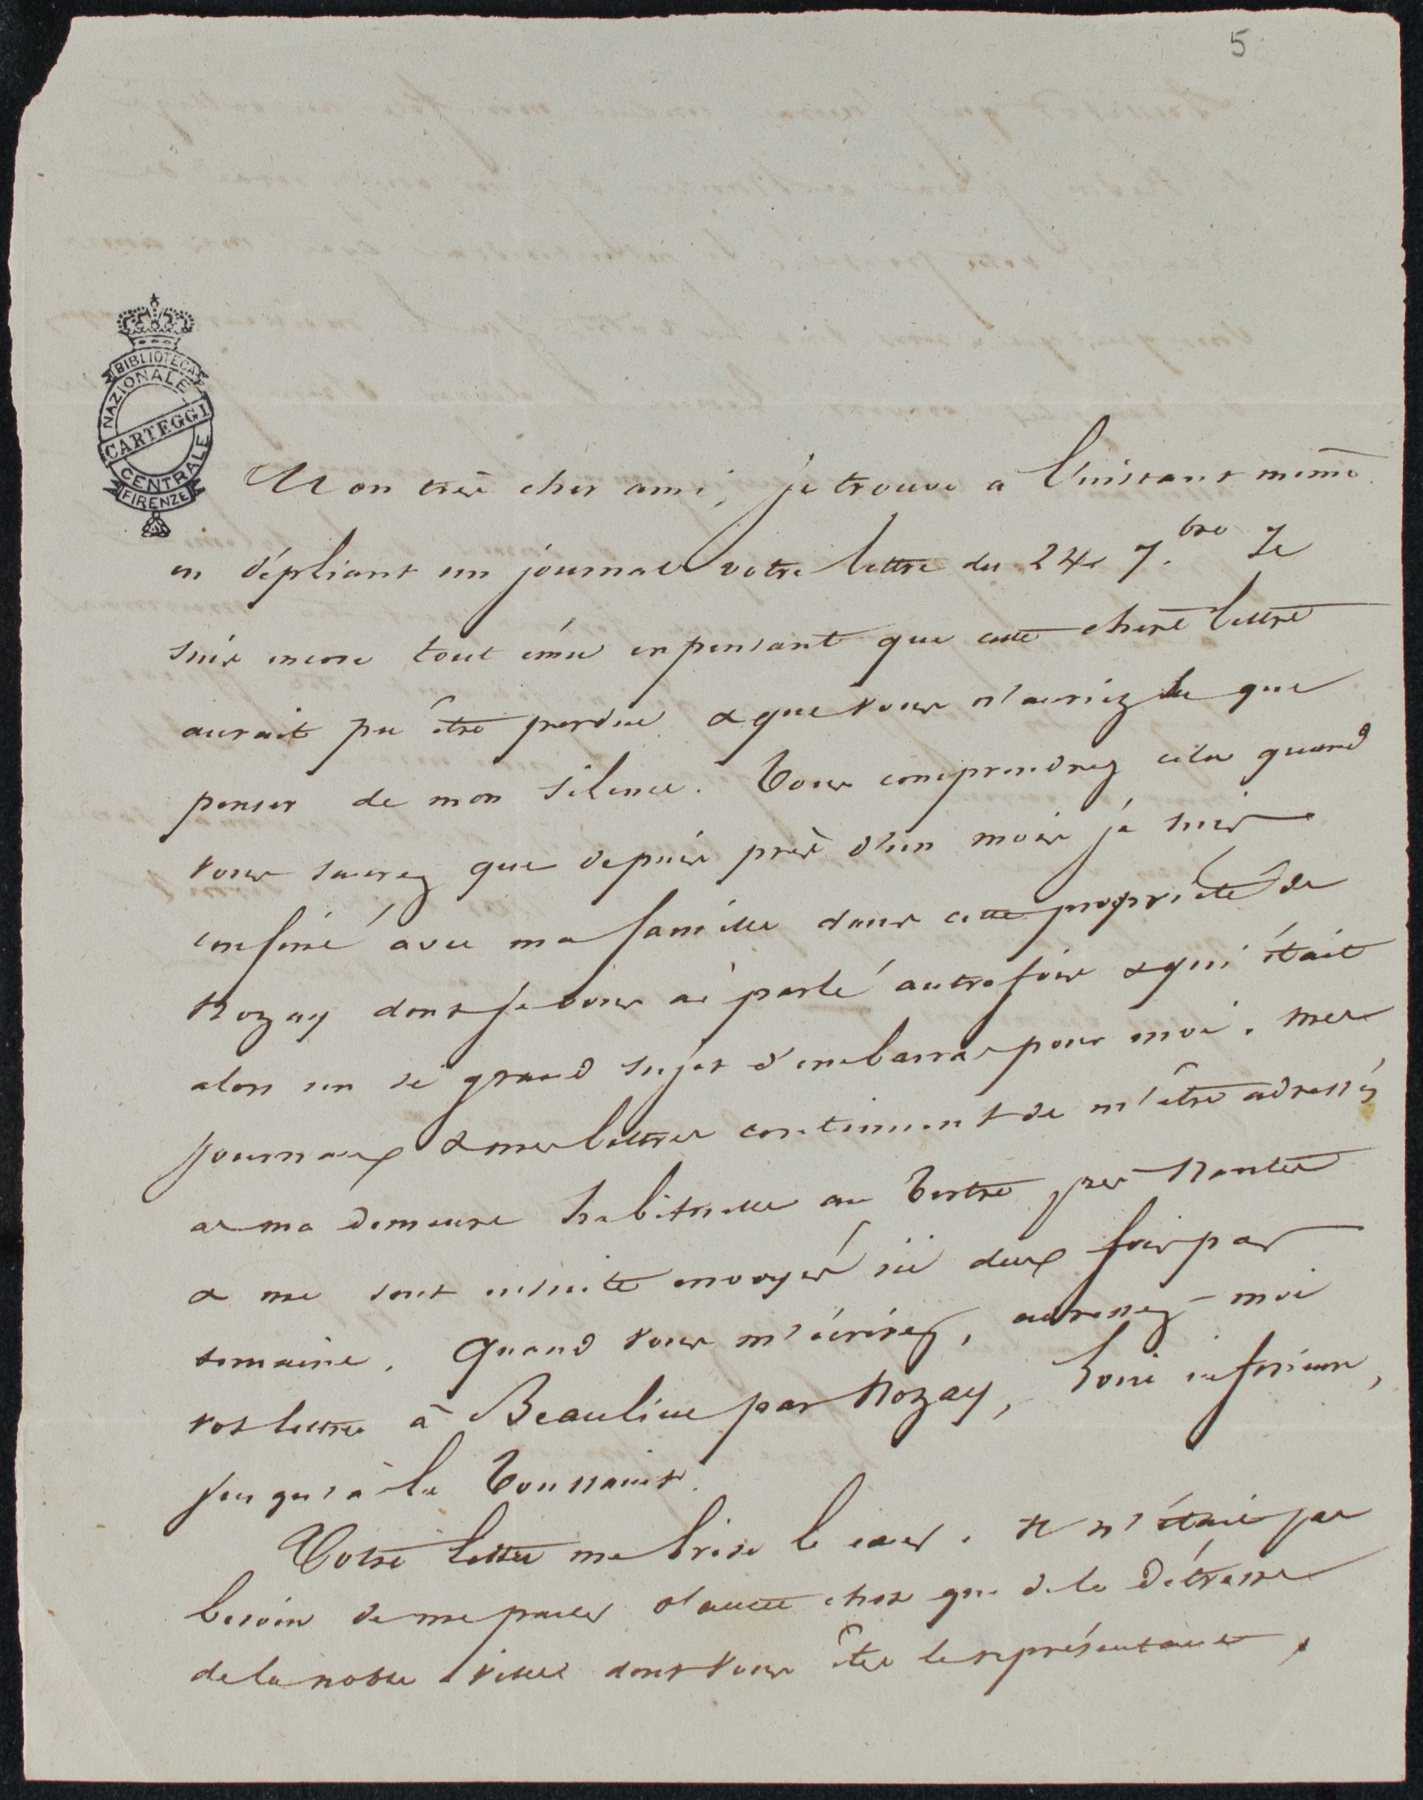 5
BIBLIOTECA
NAZIONALE
CARTEGGI
CENTRALE
FIRENZE
Mon très cher ami, je trouve a l'instant même
en dépliant un journal votre lettre du 24 7.bre Je
suis encore tout ému en pensant que cette chere lettre
aurait pu être perdue & que vous n'auriez su que
penser de mon silence. Vous comprendrez cela quand
vous saurez que depuis près d'un mois je suis
confiné avec ma famille dans cette propriété de
Nozay dont je vous ai parlé autrefois & qui était
alors un si grand sujet d'embarras pour moi. Mes
journaux & mes lettres continuent de m'être adressés
a ma demeure habituelle au Tertre près Nantes
& me sont ensuite envoyés ici deux fois par
semaine. Quand vous m'écrirez, adressez-moi
vos lettres à Beaulieu par Nozay, Loire inférieure,
jusqu'à la Toussaint.
Votre lettre me brise le cœur. Il n'était pas
besoin de me parler d'autre chose que de la détresse
de la noble ville dont vous êtes le représentant,